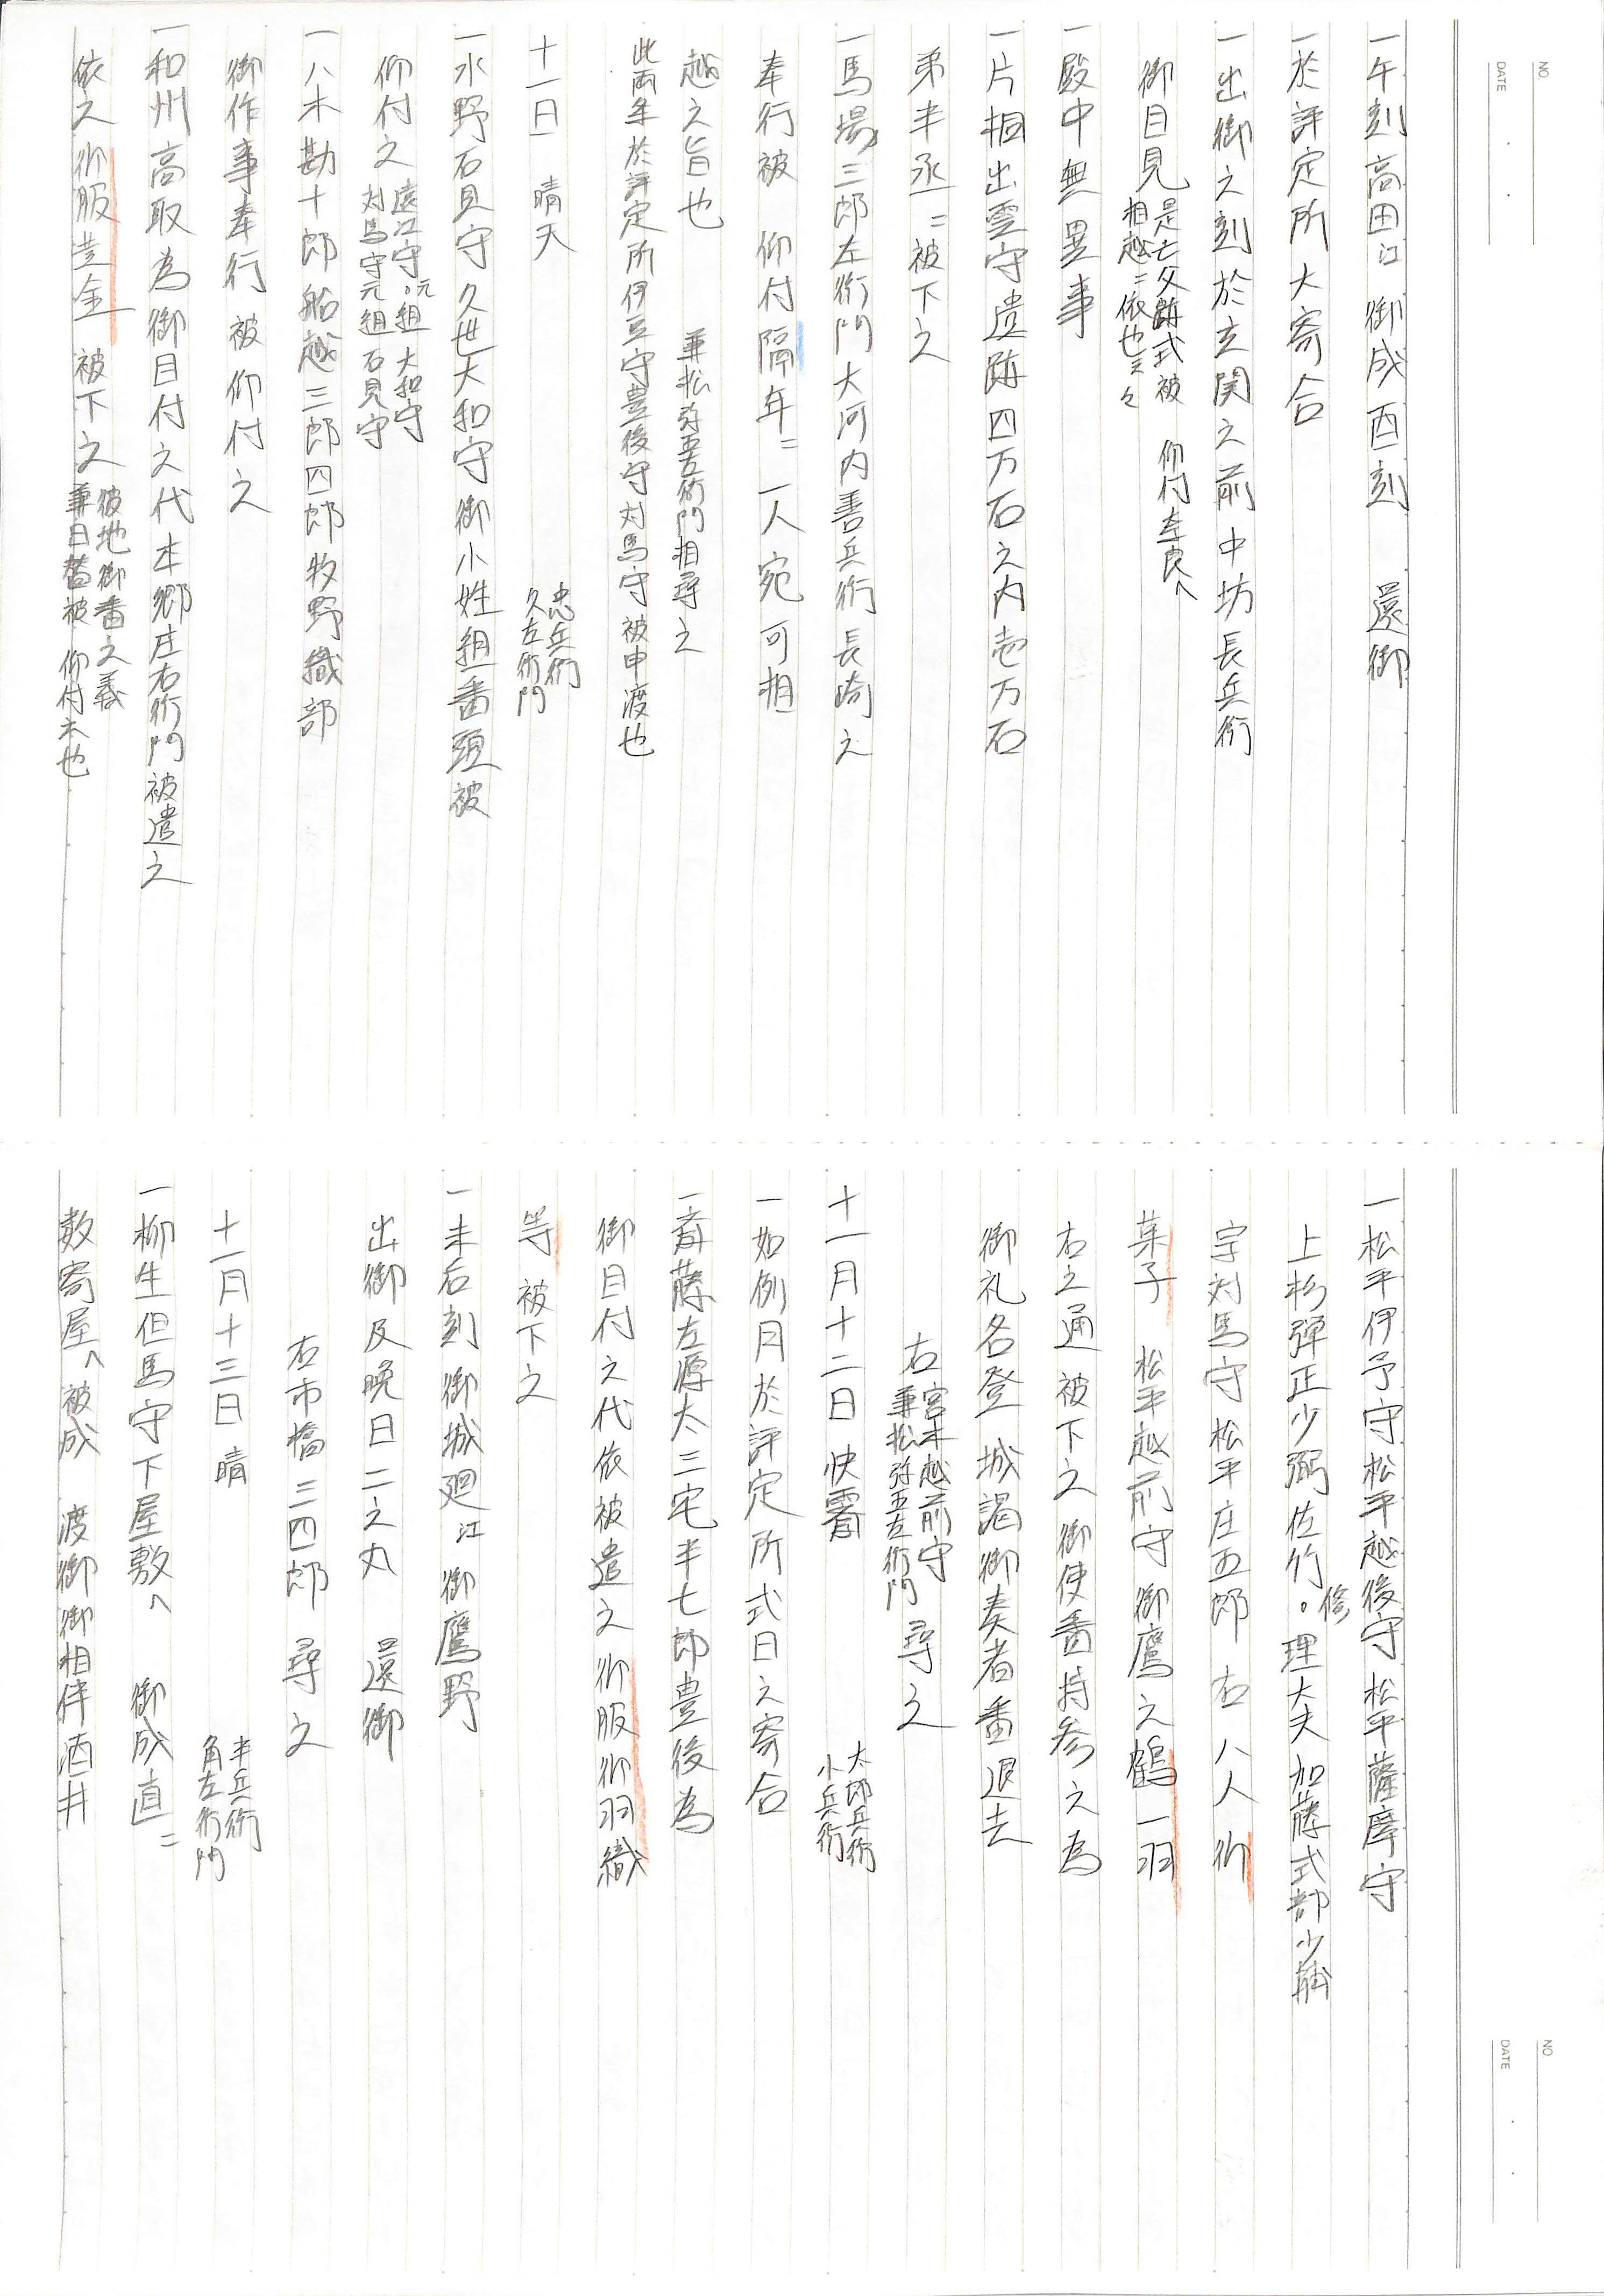 NO.
DATE
一午刻高田江 御成酉刻 還御
一於評定所大寄合
一出御之刻於玄関之前中坊長兵衛
御目見 是亡父跡式被 仰付奈良へ
相越ニ依也云々
一殿中無異事
一片桐出雲守遺跡四万石之内壱万石
弟半丞ニ被下之
一馬場三郎左衛門大河内善兵衛長崎之
奉行被 仰付隔年ニ一人宛可相
越之旨也 兼松弥五左衛門相尋之
此両年於評定所伊豆守豊後守対馬守被申渡也
十一日 晴天 忠兵衛
久左衛門
一水野石見守久世大和守御小姓組番頭被
仰付之 遠江守元組大和守
対馬守元組石見守
一八木勘十郎船越三郎四郎牧野織部
御作事奉行被仰付之
一和州高取為御目付之代本郷庄右衛門被遣之
依之御服黄金被下之 彼地御番之義
兼日替被 仰付末也
NO.
DATE
一松平伊予守松平越後守松平薩摩守
上杉弾正少弼佐竹修理大夫加藤式部少輔
宗対馬守松平庄五郎右八人御
菓子 松平越前守御鷹之鶴一羽
右之通被下之御使番持参之為
御礼名登 城謁御奏者番退去
右 宮木越前守
兼松弥五左衛門 尋之
十一月十二日快霽 太郎兵衛
小兵衛
一如例月於評定所式日之寄合
一斎藤左源太三宅半七郎豊後為
御目付之代依被遣之御服御羽織
等被下之
一未后刻御城廻江御鷹野
出御及晩日二之丸 還御
右市橋三四郎 尋之
十一月十三日 晴 半兵衛
角左衛門
一柳生但馬守下屋敷へ 御成直ニ
数寄屋へ被成 渡御御相伴酒井